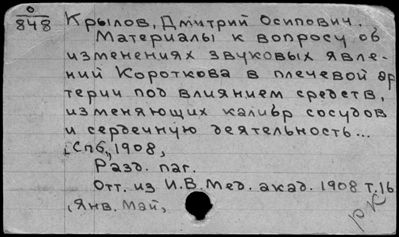 О
848
Крылов, Дмитрий Осипович.
Материалы к вопросу об
изменениях звуковых явле-
ний Короткова в плечевой ар
терии под влиянием средств,
изменяющих калибр сосудов
и сердечную деятельность...
[Спб], 1908,
Разд. паг.
Отт. из И.В.Мед. акад. 1908 т.16
(Янв. Май)
РК